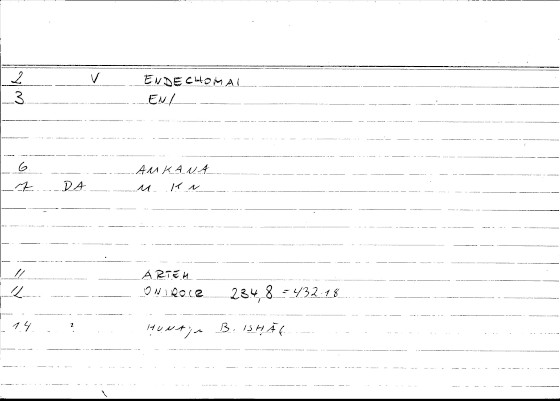 2 V ENDECHOMAI
3 EN/
6 AMKANA
7 DA M KN
11 ARTEM
12 ONIROCR 234,8 = 432.18
14 : HUNAJN B. ISHĀQ